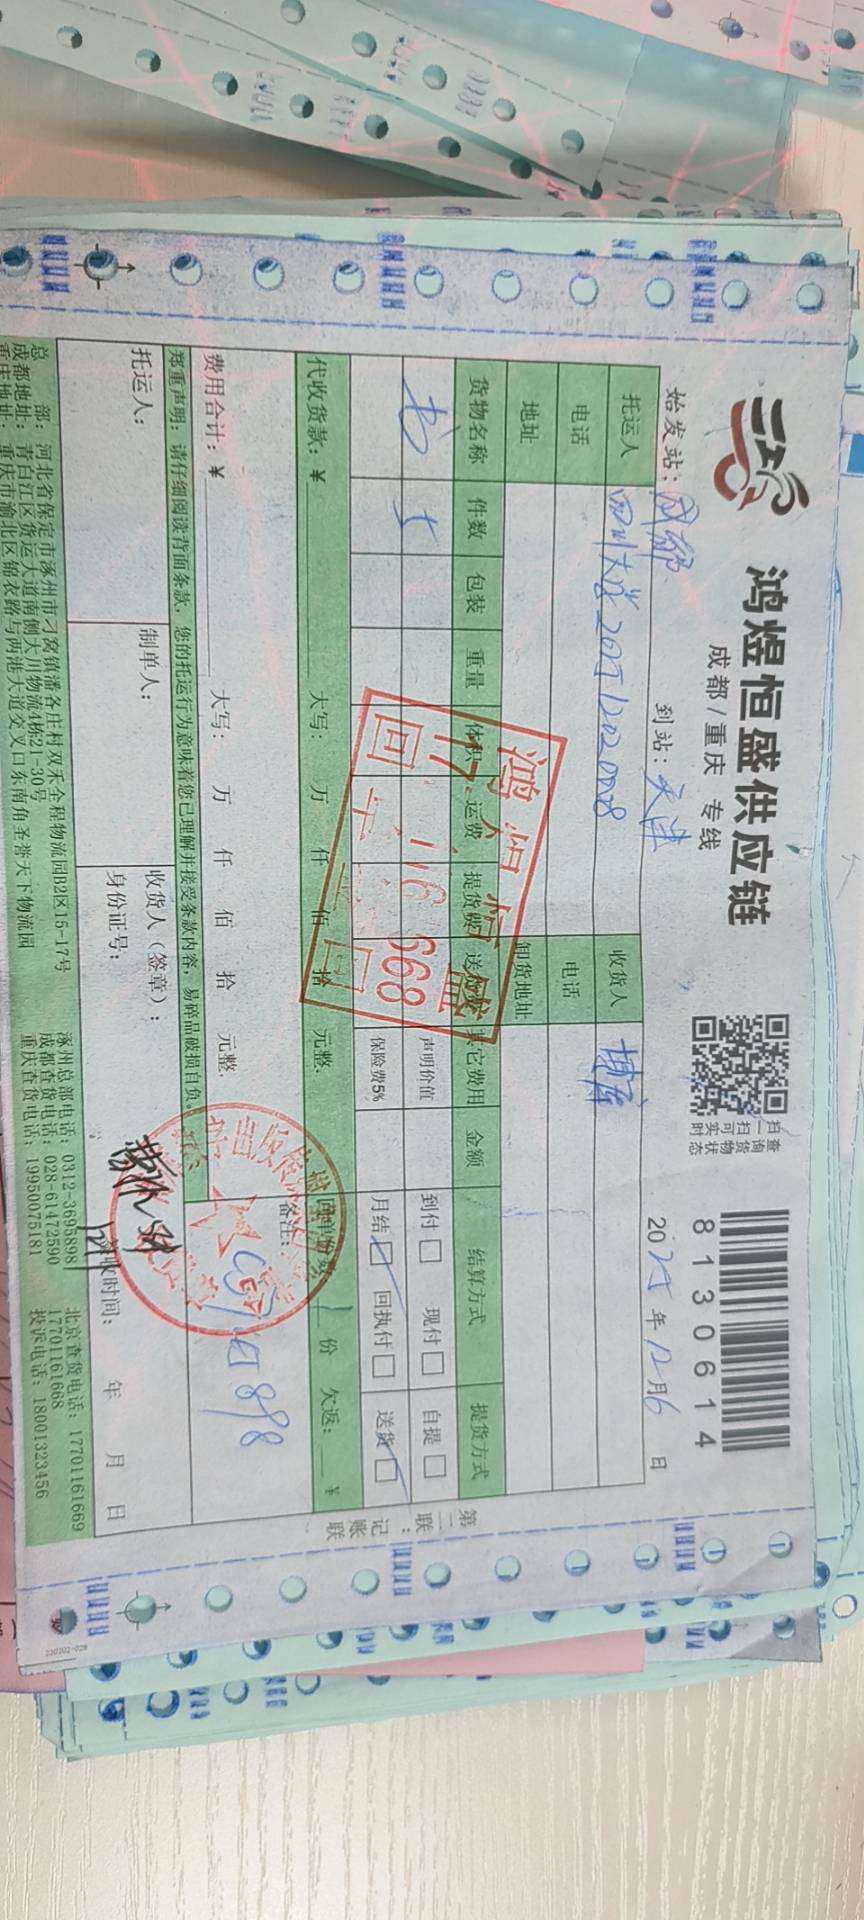 鸿煜恒盛供应链
成都/重庆 专线
扫一扫可实时
查询货物状态
8130614
始发站：成都 到站：天津 2025年12月6日
托运人 四川大学202512020008 收货人
电话 电话
地址 卸货地址
货物名称 件数 包装 重量 体积 运费 提货费 送货费 其它费用 金额 结算方式 提货方式
书 5 声明价值 到付 现付 自提
保险费5% 月结 回执付 送货
代收货款：￥ 大写： 万 仟 佰 拾 元整. 回单份数 1 份 欠返： ￥
费用合计：￥ 大写： 万 仟 佰 拾 元整. 备注：
郑重声明：请仔细阅读背面条款，您的托运行为意味着您已理解并接受条款内容，易碎品破损自负。
托运人： 制单人： 收货人（签章）： 签收时间： 年 月 日
身份证号：
总部：河北省保定市涿州市刁窝镇潘各庄村双禾全程物流园B2区15-17号 涿州总部电话：0312-3695898 北京查货电话：17701161669
成都地址：青白江区货运大道南侧大川物流4栋21-30号 成都查货电话：028-61472590 17701161668
重庆地址：重庆市渝北区锦衣路与两港大道交叉口东南角圣誉天下物流园 重庆查货电话：19950075181 投诉电话：18001323456
第二联：记账联
鸿煜恒盛